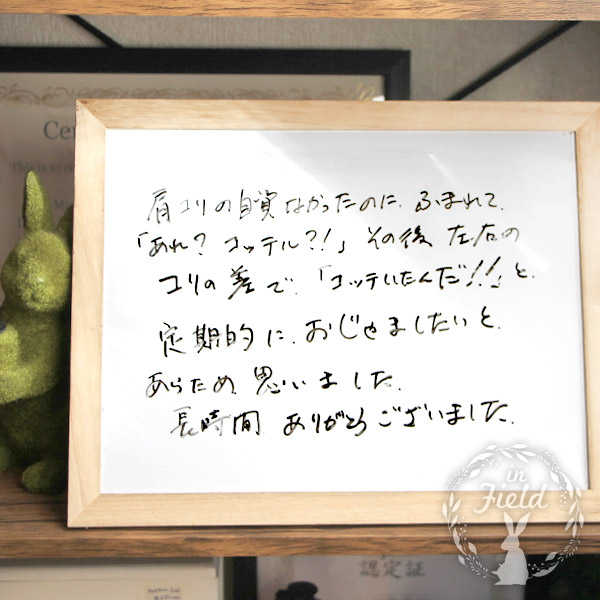 肩コリの自資なかったのに、ふまれて、
「あれ？コッテル?!」その後 左右の
コリの差で、「コッテいたんだ!!」と、
定期的に、おじゃましたいと、
あらため、思いました。
長時間 ありがとうございました。
Ce
This is to ce
認定証
in
Field